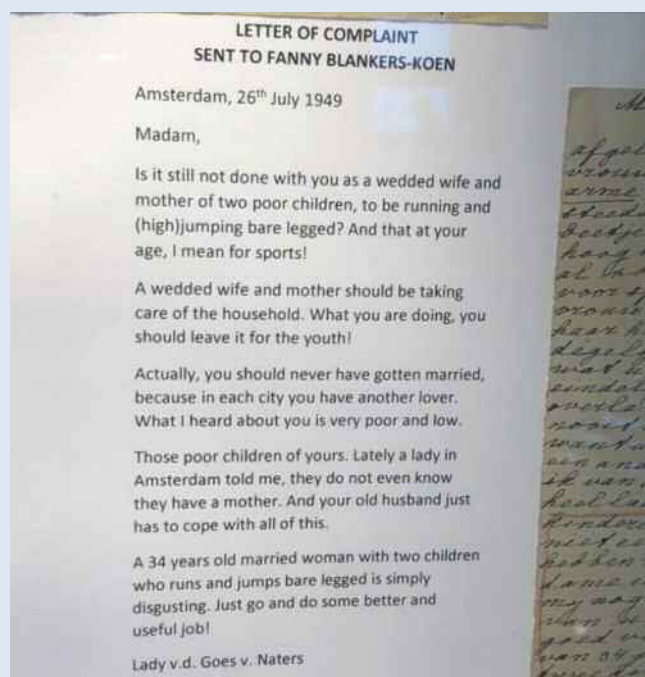 LETTER OF COMPLAINT
SENT TO FANNY BLANKERS-KOEN
Amsterdam, 26th July 1949
Madam,
Is it still not done with you as a wedded wife and
mother of two poor children, to be running and
(high)jumping bare legged? And that at your
age, I mean for sports!
A wedded wife and mother should be taking
care of the household. What you are doing, you
should leave it for the youth!
Actually, you should never have gotten married,
because in each city you have another lover.
What I heard about you is very poor and low.
Those poor children of yours. Lately a lady in
Amsterdam told me, they do not even know
they have a mother. And your old husband just
has to cope with all of this.
A 34 years old married woman with two children
who runs and jumps bare legged is simply
disgusting. Just go and do some better and
useful job!
Lady v.d. Goes v. Naters
arme
steeds
haar h
ik van
heel la
kindere
niet e
hebben
dame
van 34